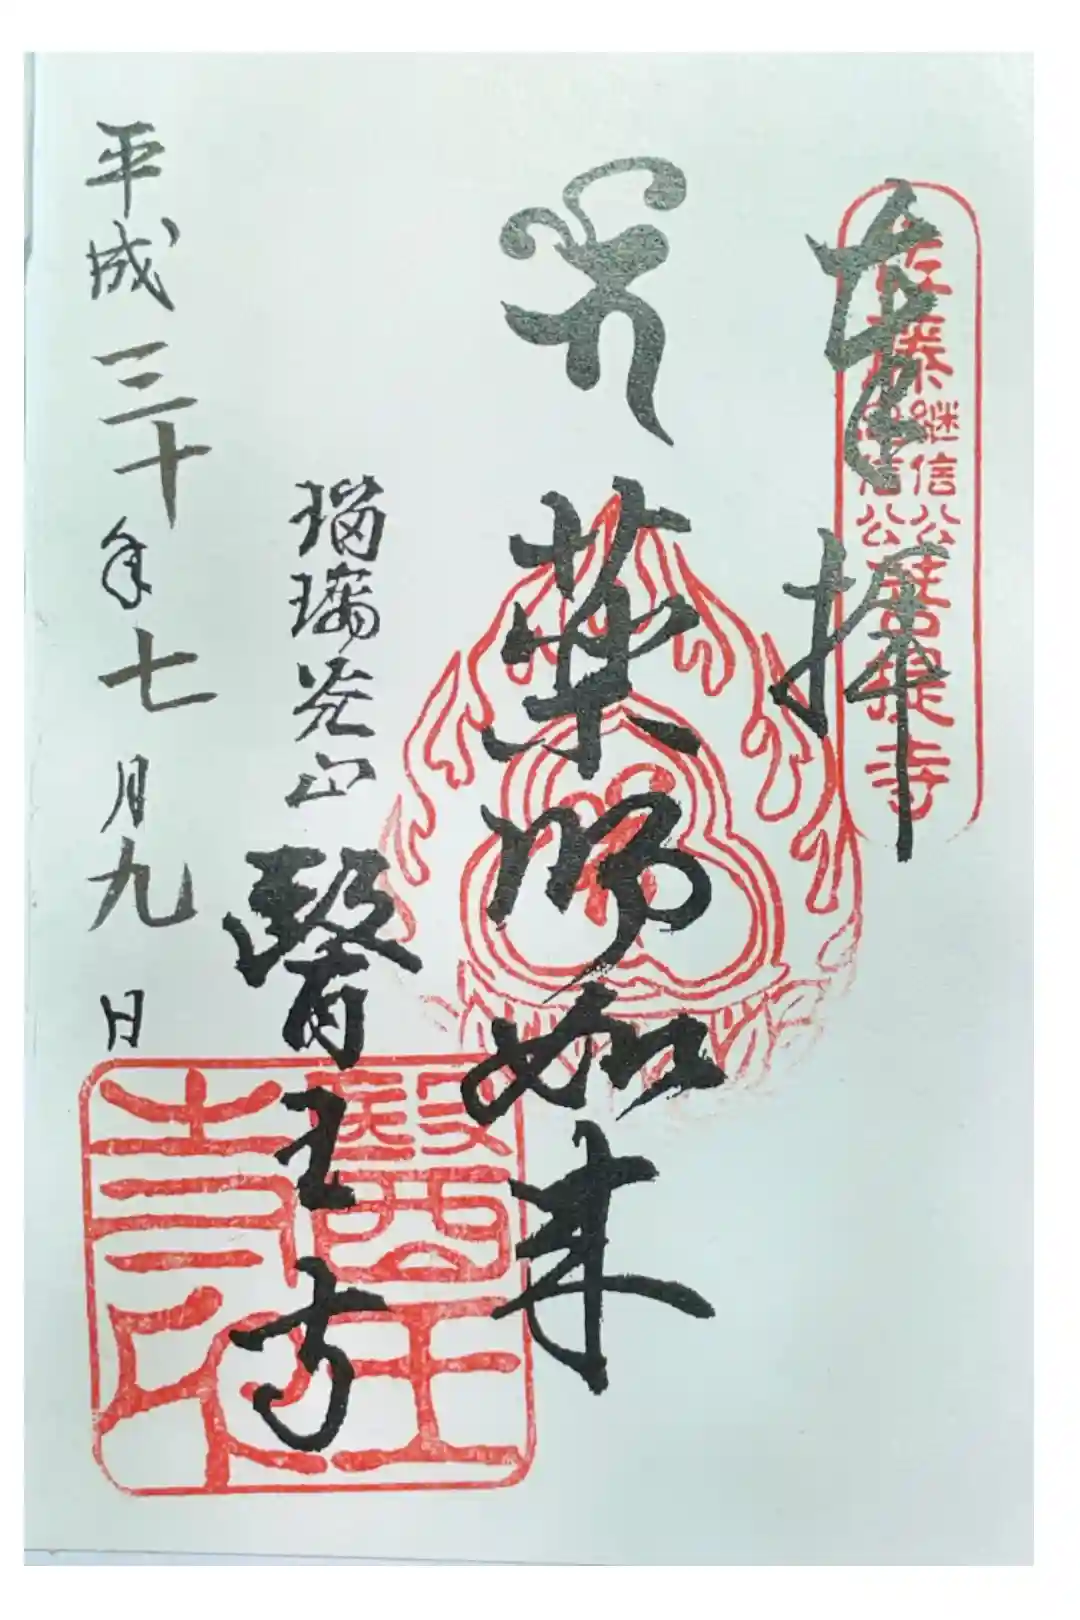 奉拝
佐藤継信公忠信公菩提寺
薬師如来
瑠璃光山
醫王寺
平成三十年七月九日
醫王寺印